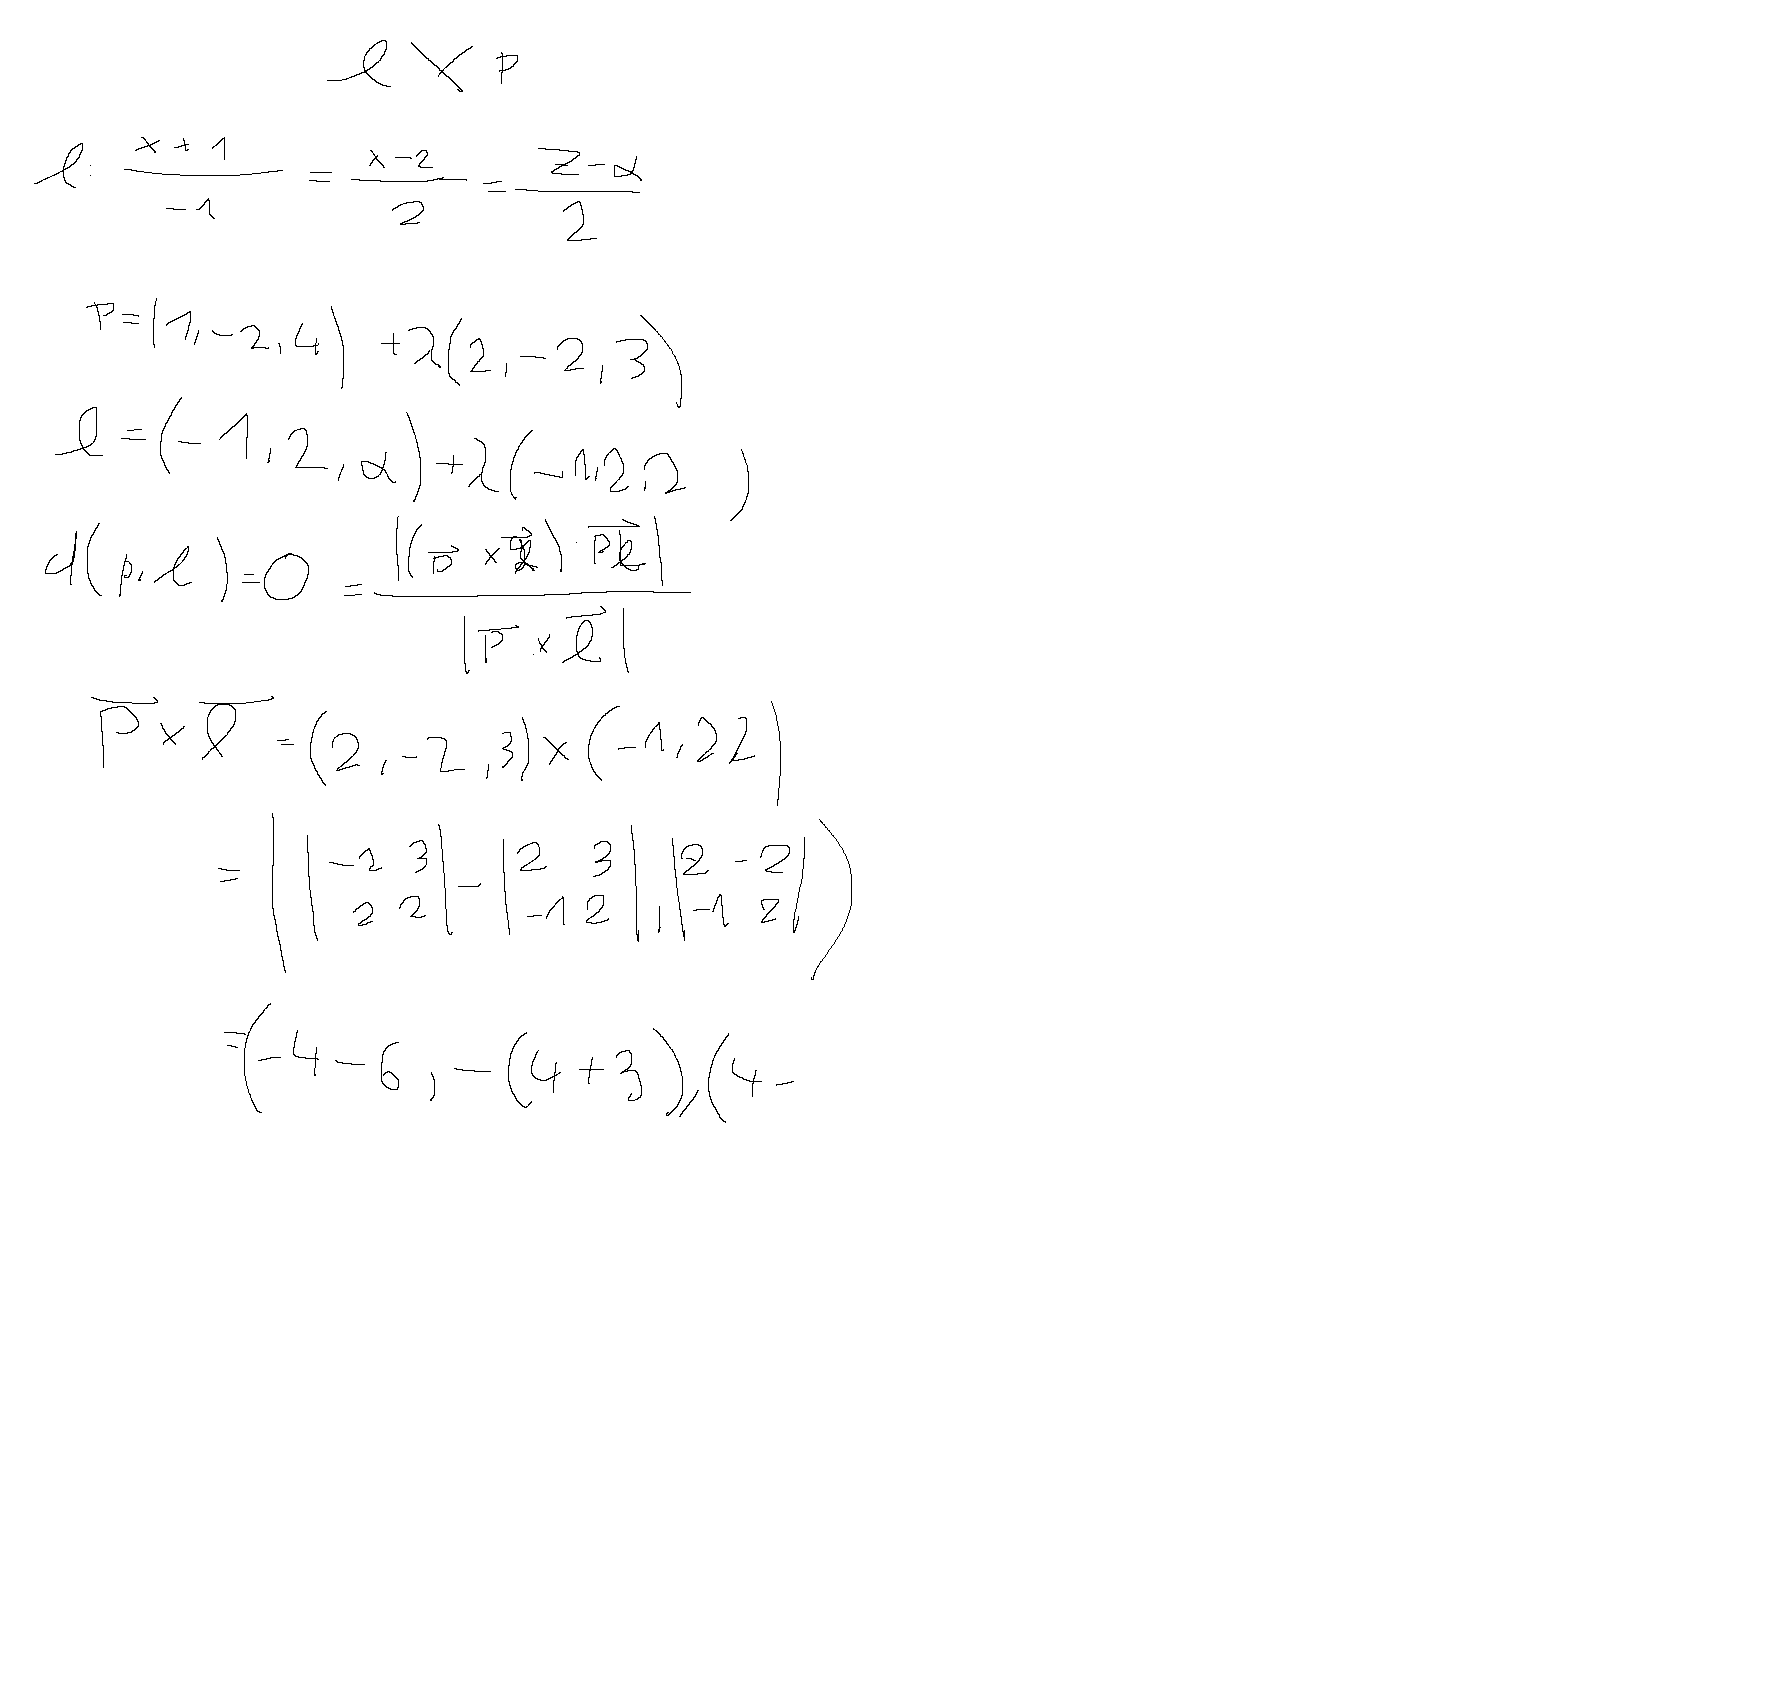 ℓ X p
ℓ: (x+1)/(-1) = (x-2)/2 = (z-α)/2
P=(1,-2,4) +λ(2,-2,3)
ℓ=(-1,2,α)+λ(-1,2,2)
d(p,ℓ)=0 = |(p⃗ ×ℓ⃗)·Pℓ⃗| / |p⃗ × ℓ⃗|
p⃗ × ℓ⃗ = (2,-2,3)×(-1,22)
= ( |-2 3; 2 2| - |2 3; -1 2| , |2 -2; -1 2| )
=(-4-6, -(4+3),(4-